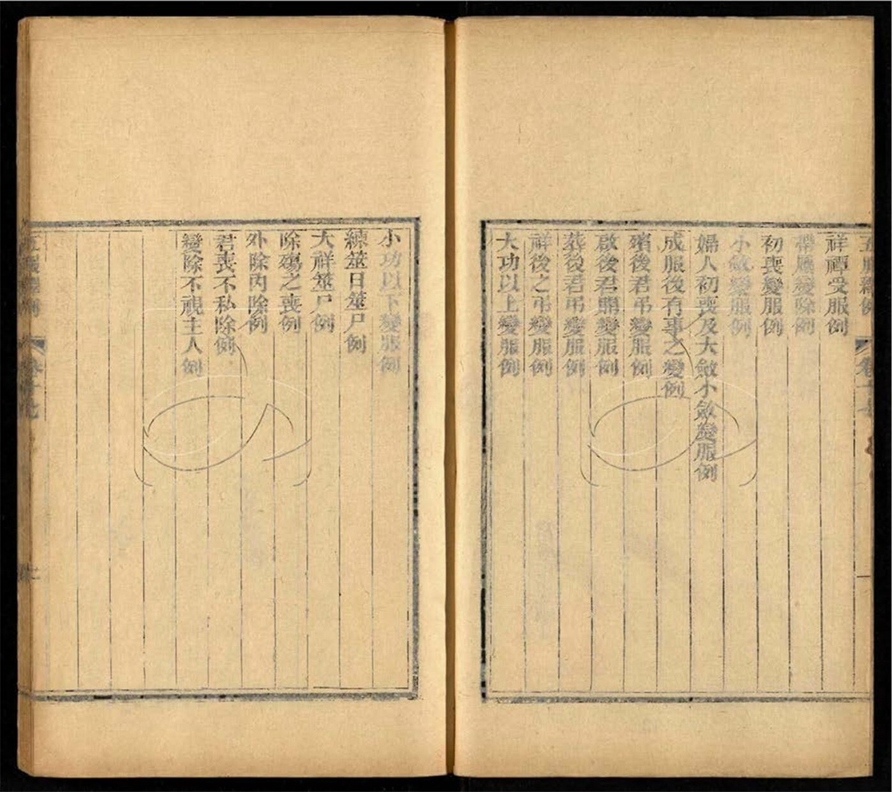 五服釋例
卷十七
一
祥禫受服例
帶屨變除例
初喪變服例
小斂變服例
婦人初喪及大斂小斂變服例
成服後有事之變例
殯後君弔變服例
啟後君弔變服例
葬後君弔變服例
祥後之弔變服例
大功以上變服例
小功以下變服例
練筮日筮尸例
大祥筮尸例
除殤之喪例
外除內除例
君喪不私除例
變除不視主人例
五服釋例